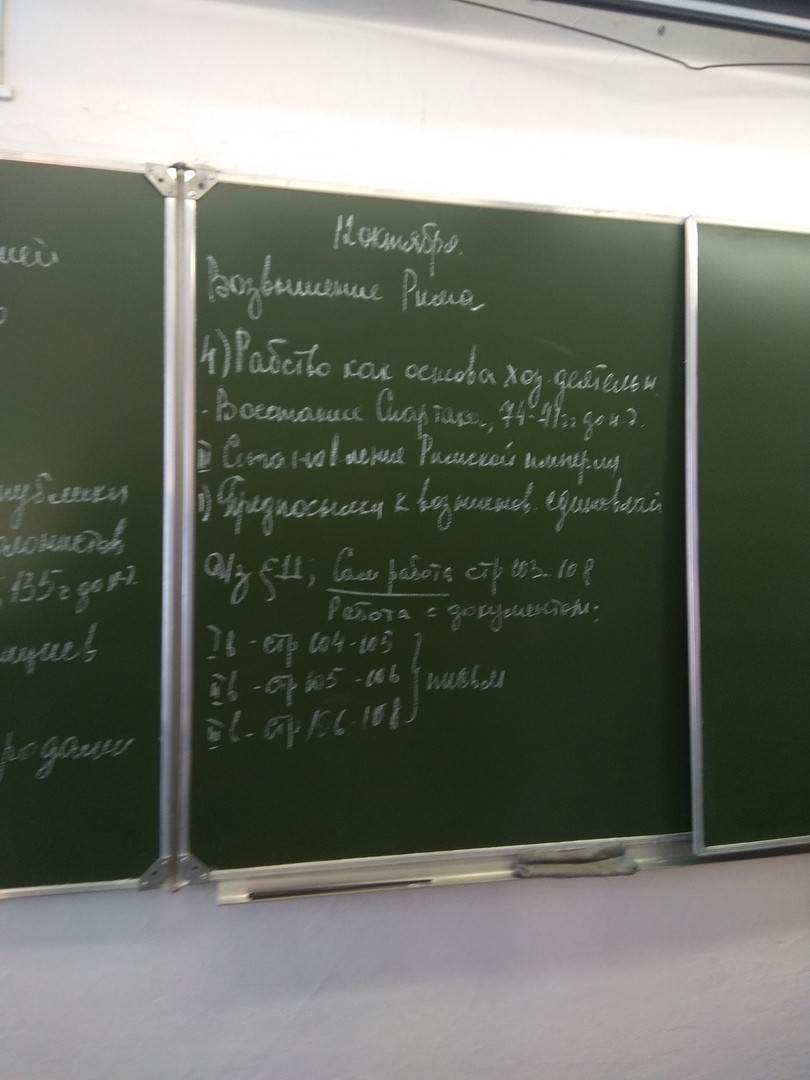 12 октября.
Возвышение Рима
4) Рабство как основа хоз. деятельн.
- Восстание Спартака, 74-71 гг до н.э.
II Становление Римской империи
1) Предпосылки к возникнов. единовлас
Д/з §11, Сам работа стр 103-108
Работа с документом:
I в - стр 104-105
II в - стр 105-106
III в - стр 106-108
письм
135 г до н.э.